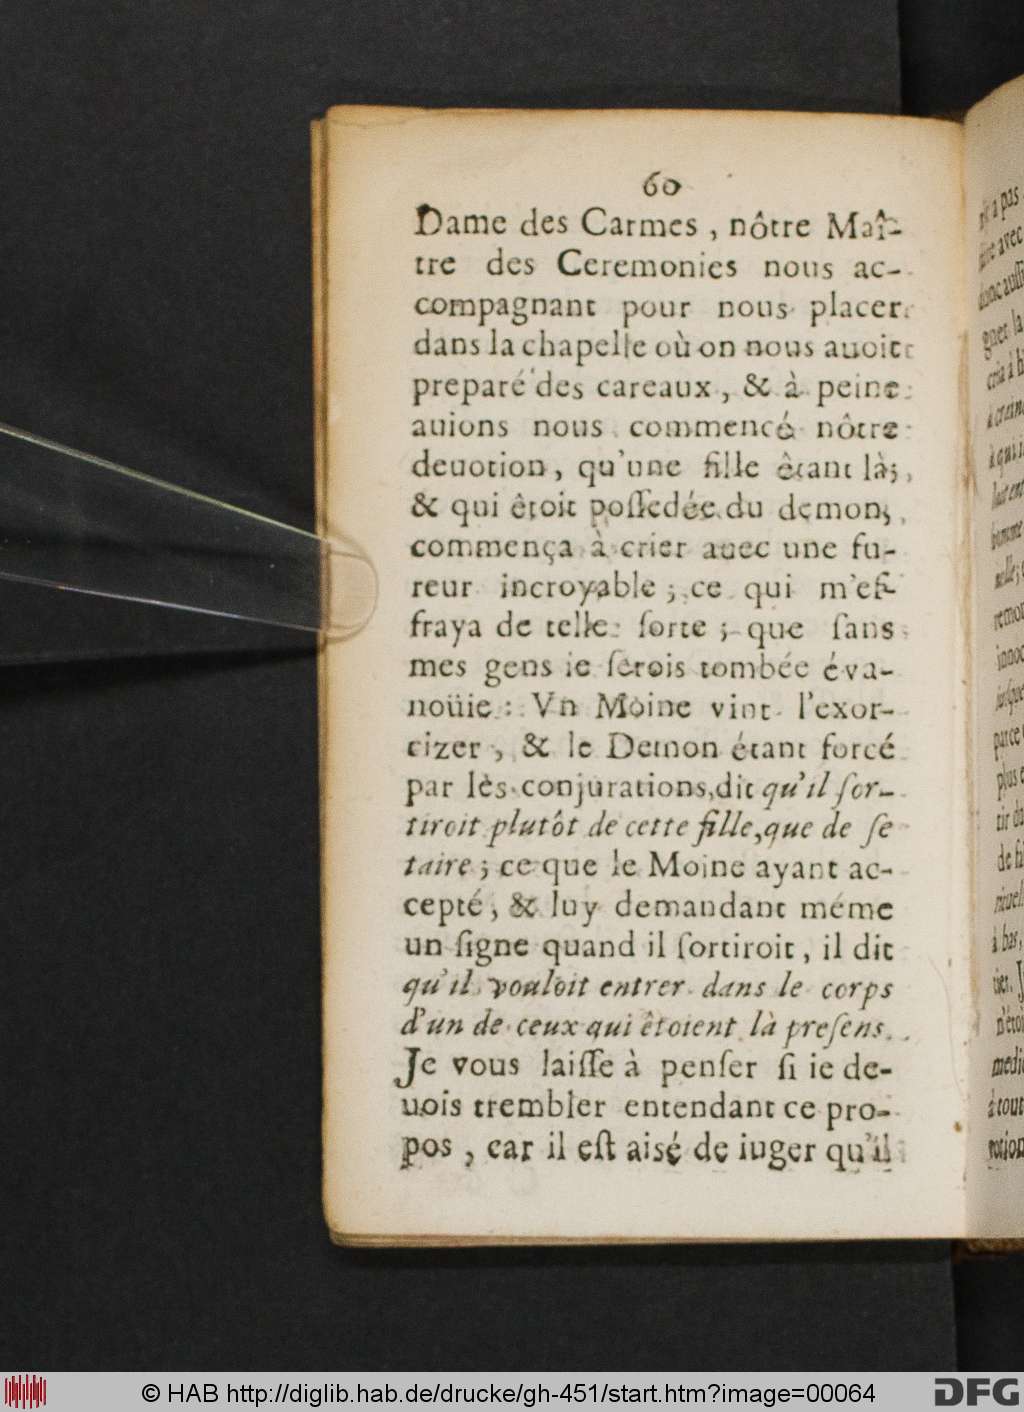 60
Dame des Carmes, nôtre Maî-
tre des Ceremonies nous ac-
compagnant pour nous placer
dans la chapelle où on nous auoit
preparé des careaux, & à peine
auions nous commencé nôtre
deuotion, qu'une fille êtant là,
& qui êtoit poſſedée du demon,
commença à crier auec une fu-
reur incroyable; ce qui m'ef-
fraya de telle ſorte; que ſans
mes gens ie ſerois tombée éva-
noüie: Vn Moine vint l'exor-
cizer, & le Demon étant forcé
par lès conjurations, dit qu'il ſor-
tiroit plutôt de cette fille, que de ſe
taire; ce que le Moine ayant ac-
cepté, & luy demandant méme
un ſigne quand il ſortiroit, il dit
qu'il vouloit entrer dans le corps
d'un de ceux qui êtoient là preſens.
Je vous laiſſe à penſer ſi ie de-
uois trembler entendant ce pro-
pos, car il eſt aisé de iuger qu'il
a pas
avec
donc auſſi
la
cria à
à
à qui
remon
innoc
parce
plus
tir
de
à bas,
n'étoi
à tout
© HAB http://diglib.hab.de/drucke/gh-451/start.htm?image=00064
DFG